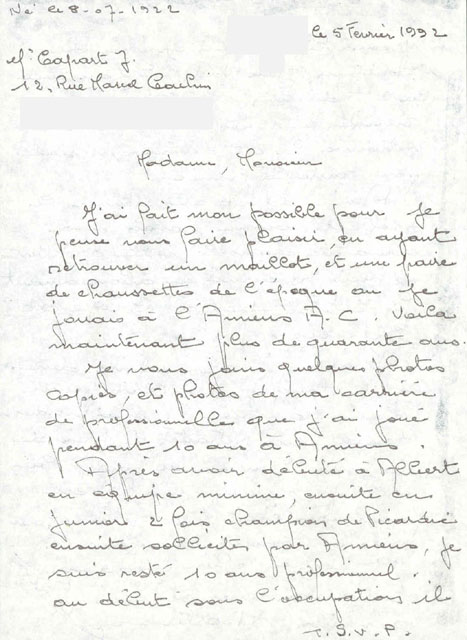 Né le 8-07-1922
le 5 Fevrier 1992
Mr Capart J.
12, Rue Marcel
Madame, Monsieur
J'ai fait mon possible pour Je
pense vous faire plaisir, en ayant
retrouver un maillots, et une paire
de chaussettes de l'époque ou Je
jouais à l'Amiens A.C. Voila
maintenant plus de quarante ans.
Je vous joins quelques photos
copies, et photos de ma carrière
de professionnelle que j'ai joué
pendant 10 ans à Amiens.
Après avoir débuté à Albert
en équipe minime, ensuite en
junior 2 fois champion de Picardie
ensuite sollicites par Amiens, je
suis resté 10 ans professionnel.
au début sous l'occupation il
T.S.V.P.